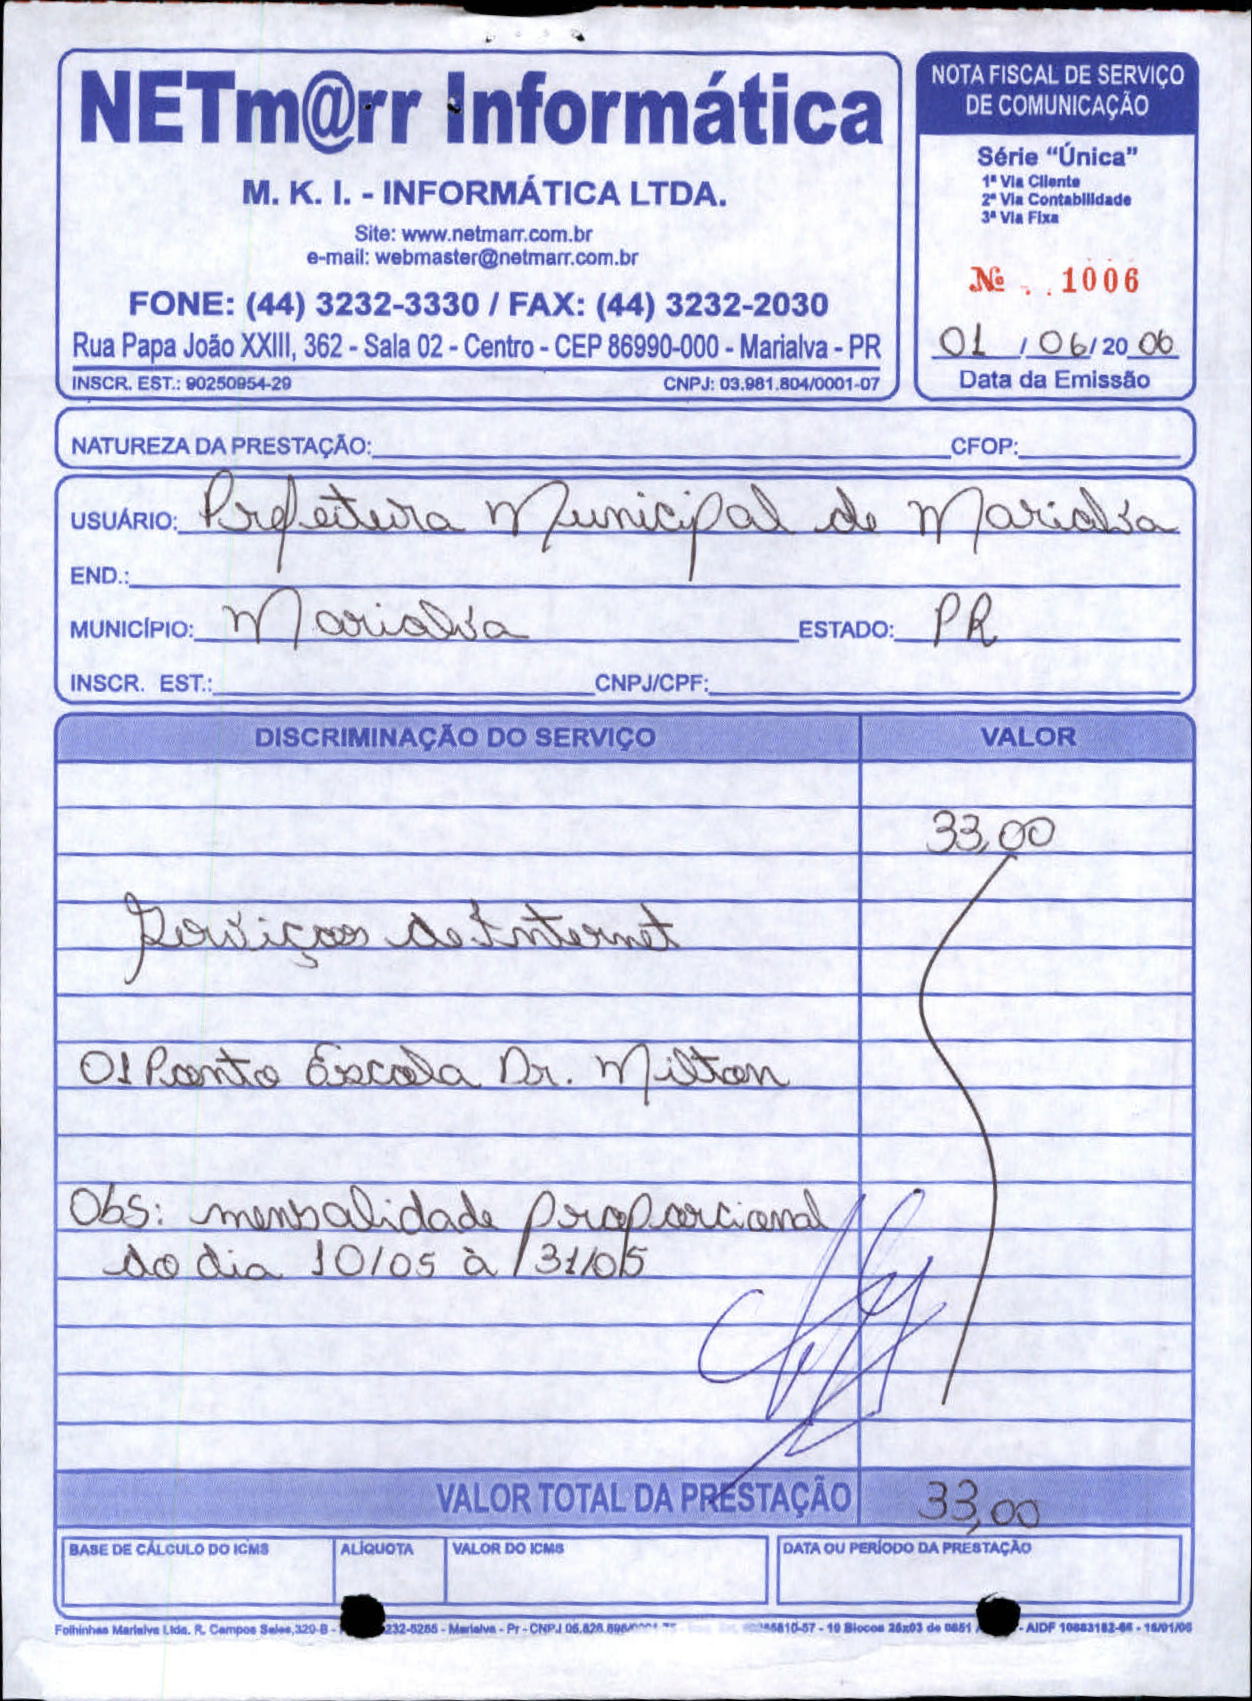 NETm@rr Informática
M. K. I. - INFORMÁTICA LTDA.
Site: www.netmarr.com.br
e-mail: webmaster@netmarr.com.br
FONE: (44) 3232-3330 / FAX: (44) 3232-2030
Rua Papa João XXIII, 362 - Sala 02 - Centro - CEP 86990-000 - Marialva - PR
INSCR. EST.: 90250954-29 CNPJ: 03.981.804/0001-07
NOTA FISCAL DE SERVIÇO
DE COMUNICAÇÃO
Série "Única"
1ª Via Cliente
2ª Via Contabilidade
3ª Via Fixa
Nº 1006
01 / 06 / 20 06
Data da Emissão
NATUREZA DA PRESTAÇÃO: CFOP:
USUÁRIO: Prefeitura Municipal de Marialva
END.:
MUNICÍPIO: Marialva ESTADO: PR
INSCR. EST.: CNPJ/CPF:
DISCRIMINAÇÃO DO SERVIÇO VALOR
33,00
Serviços de Internet
01 Ponto Escola Dr. Milton
Obs: mensalidade proporcional
do dia 10/05 à 31/05
VALOR TOTAL DA PRESTAÇÃO 33,00
BASE DE CÁLCULO DO ICMS ALÍQUOTA VALOR DO ICMS DATA OU PERÍODO DA PRESTAÇÃO
Folhinhas Marialva Ltda. R. Campos Sales, 320-B - 232-5265 - Marialva - Pr - CNPJ - 10 Blocos 25x03 de 0851 - AIDF - 16/01/06